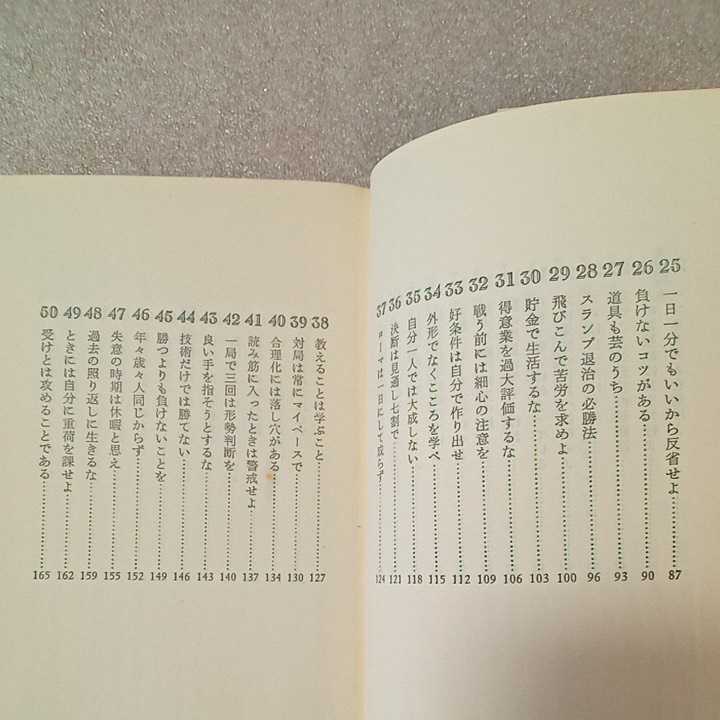 25 一日一分でもいいから反省せよ……87
26 負けないコツがある……90
27 道具も芸のうち……93
28 スランプ退治の必勝法……96
29 飛びこんで苦労を求めよ……100
30 貯金で生活するな……103
31 得意業を過大評価するな……106
32 戦う前には細心の注意を……109
33 好条件は自分で作り出せ……112
34 外形でなくこころを学べ……115
35 自分一人では大成しない……118
36 決断は見通し七割で……121
37 ローマは一日にして成らず……124
38 教えることは学ぶこと……127
39 対局は常にマイペースで……130
40 合理化には落し穴がある……134
41 読み筋に入ったときは警戒せよ……137
42 一局で三回は形勢判断を……140
43 良い手を指そうとするな……143
44 技術だけでは勝てない……146
45 勝つよりも負けないことを……149
46 年々歳々人同じからず……152
47 失意の時期は休暇と思え……155
48 過去の照り返しに生きるな……159
49 ときには自分に重荷を課せよ……162
50 受けとは攻めることである……165